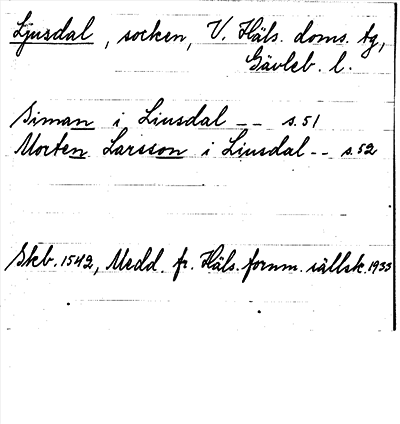 Ljusdal, socken, V. Häls. doms. tg,
Gävleb. l.
Siman i Liusdal -- s.51
Morten Larsson i Liusdal -- s.52
Skb. 1542, Medd. fr. Häls. fornm. sällsk. 1933